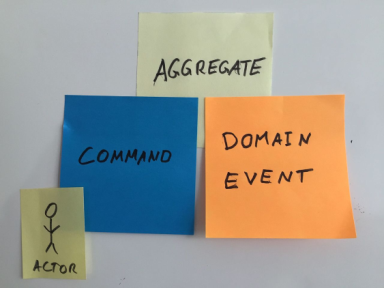 AGGREGATE
COMMAND
DOMAIN
EVENT
ACTOR